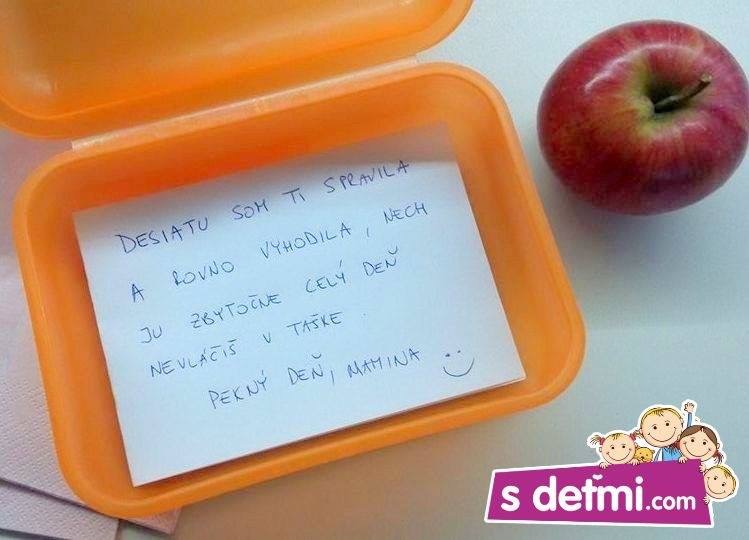 DESIATU SOM TI SPRAVILA
A ROVNO VYHODILA, NECH
JU ZBYTOČNE CELÝ DEŇ
NEVLÁČIŠ V TAŠKE.
PEKNÝ DEŇ, MAMINA
s deťmi.com